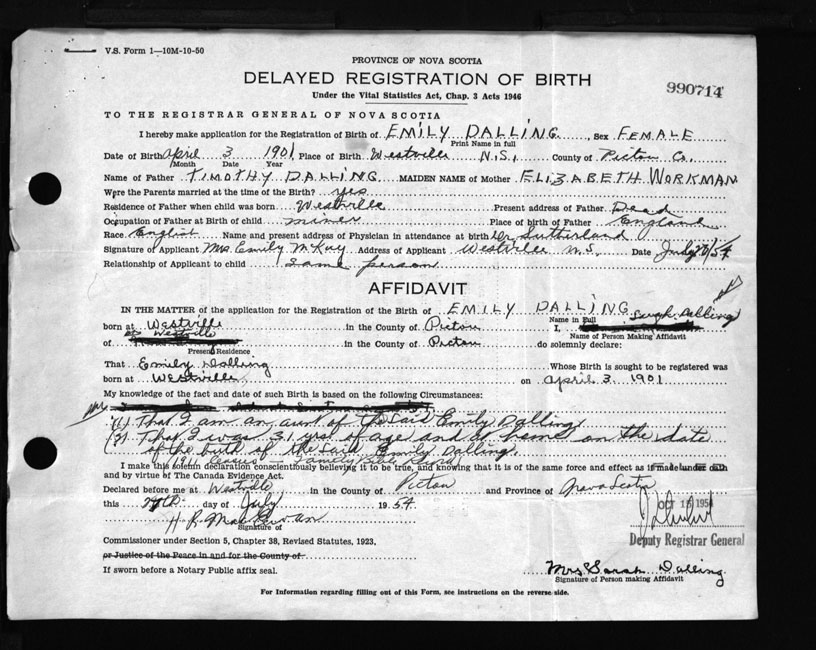 V.S. Form 1—10M-10-50
PROVINCE OF NOVA SCOTIA
DELAYED REGISTRATION OF BIRTH
990714
Under the Vital Statistics Act, Chap. 3 Acts 1946
TO THE REGISTRAR GENERAL OF NOVA SCOTIA
I hereby make application for the Registration of Birth of EMILY DALLING, Sex FEMALE
Print Name in full
Date of Birth April 3 1901 Place of Birth Westville N.S. County of Pictou Co.
Month Date Year
Name of Father TIMOTHY DALLING MAIDEN NAME of Mother ELIZABETH WORKMAN
Were the Parents married at the time of the Birth? yes
Residence of Father when child was born Westville Present address of Father Dead
Occupation of Father at Birth of child miner Place of birth of Father England
Race English Name and present address of Physician in attendance at birth Dr Sutherland
Signature of Applicant Mrs. Emily McKay Address of Applicant Westville N.S. Date July 27/54
Relationship of Applicant to child Same person
AFFIDAVIT
IN THE MATTER of the application for the Registration of the Birth of EMILY DALLING
Name in Full
born at Westville in the County of Pictou I, Sarah Dalling
Name of Person Making Affidavit
of Westville in the County of Pictou do solemnly declare:
Present Residence
That Emily Dalling Whose Birth is sought to be registered was
born at Westville on April 3 1901
My knowledge of the fact and date of such Birth is based on the following Circumstances:
(1) That I am an aunt of the said Emily Dalling
(2) That I was 31 yrs of age and at home on the date
of the birth of the said Emily Dalling.
1911 Census
I make this solemn declaration conscientiously believing it to be true, and knowing that it is of the same force and effect as if made under oath
and by virtue of The Canada Evidence Act.
Declared before me at Westville in the County of Pictou and Province of Nova Scotia
this 27th day of July 1954
OCT 15 1954
Signature of
Deputy Registrar General
Commissioner under Section 5, Chapter 38, Revised Statutes, 1923,
or Justice of the Peace in and for the County of
If sworn before a Notary Public affix seal.
Mrs Sarah Dalling
Signature of Person making Affidavit
For Information regarding filling out of this Form, see instructions on the reverse side.